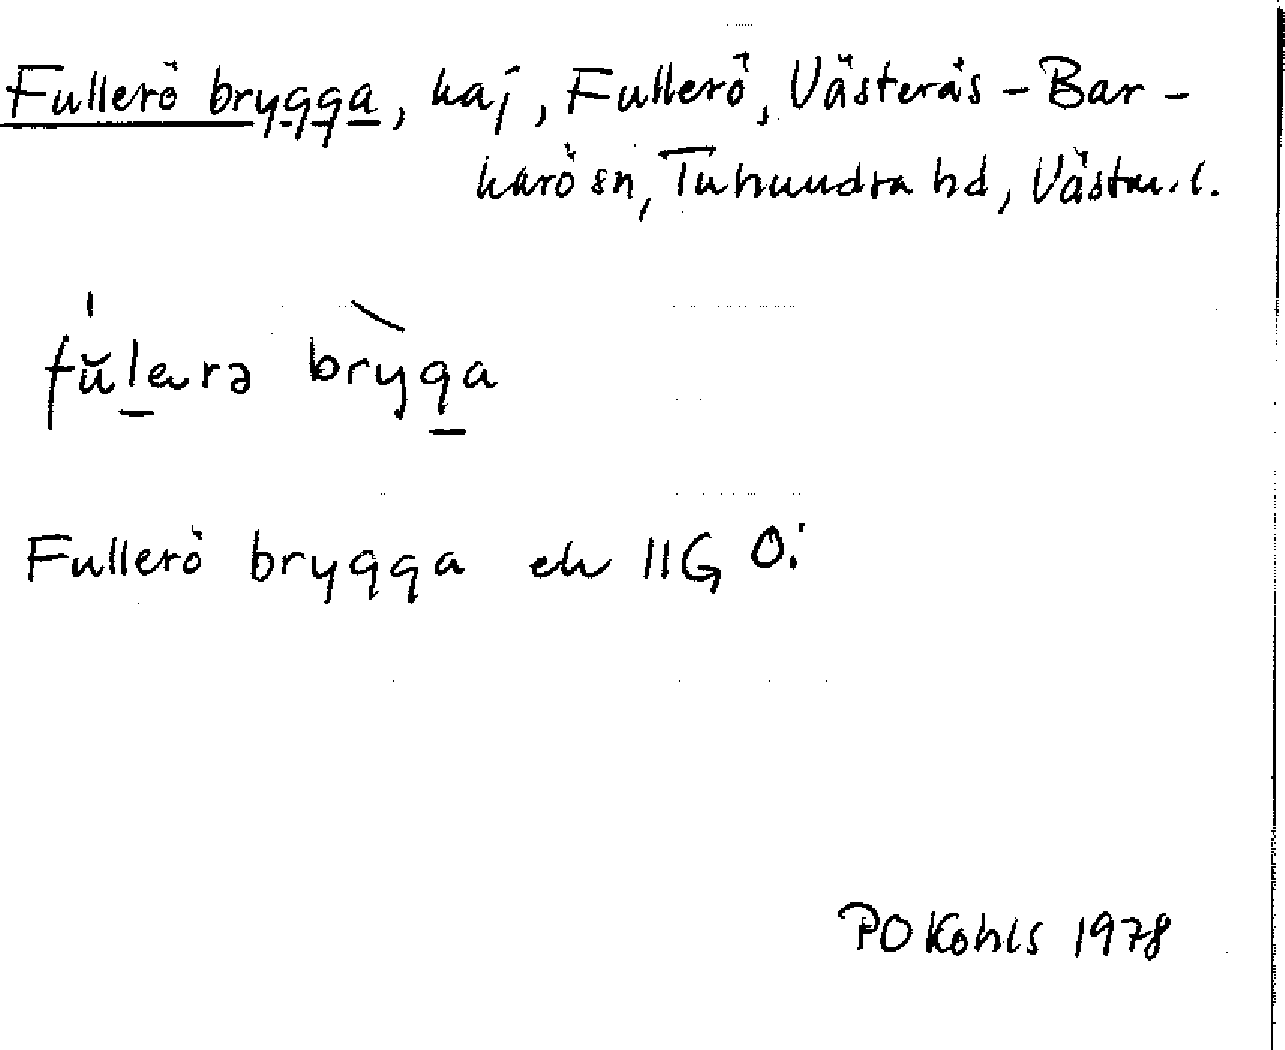 Fullerö brygga, kaj, Fullerö, Västerås-Bar-
karö sn, Tuhundra hd, Västm. l.
fŭlera bryga
Fullerö brygga ek 11G 0i
PO Kohls 1978